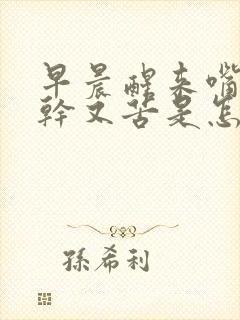 早晨醒来嘴
幹又苦是怎
孫希利